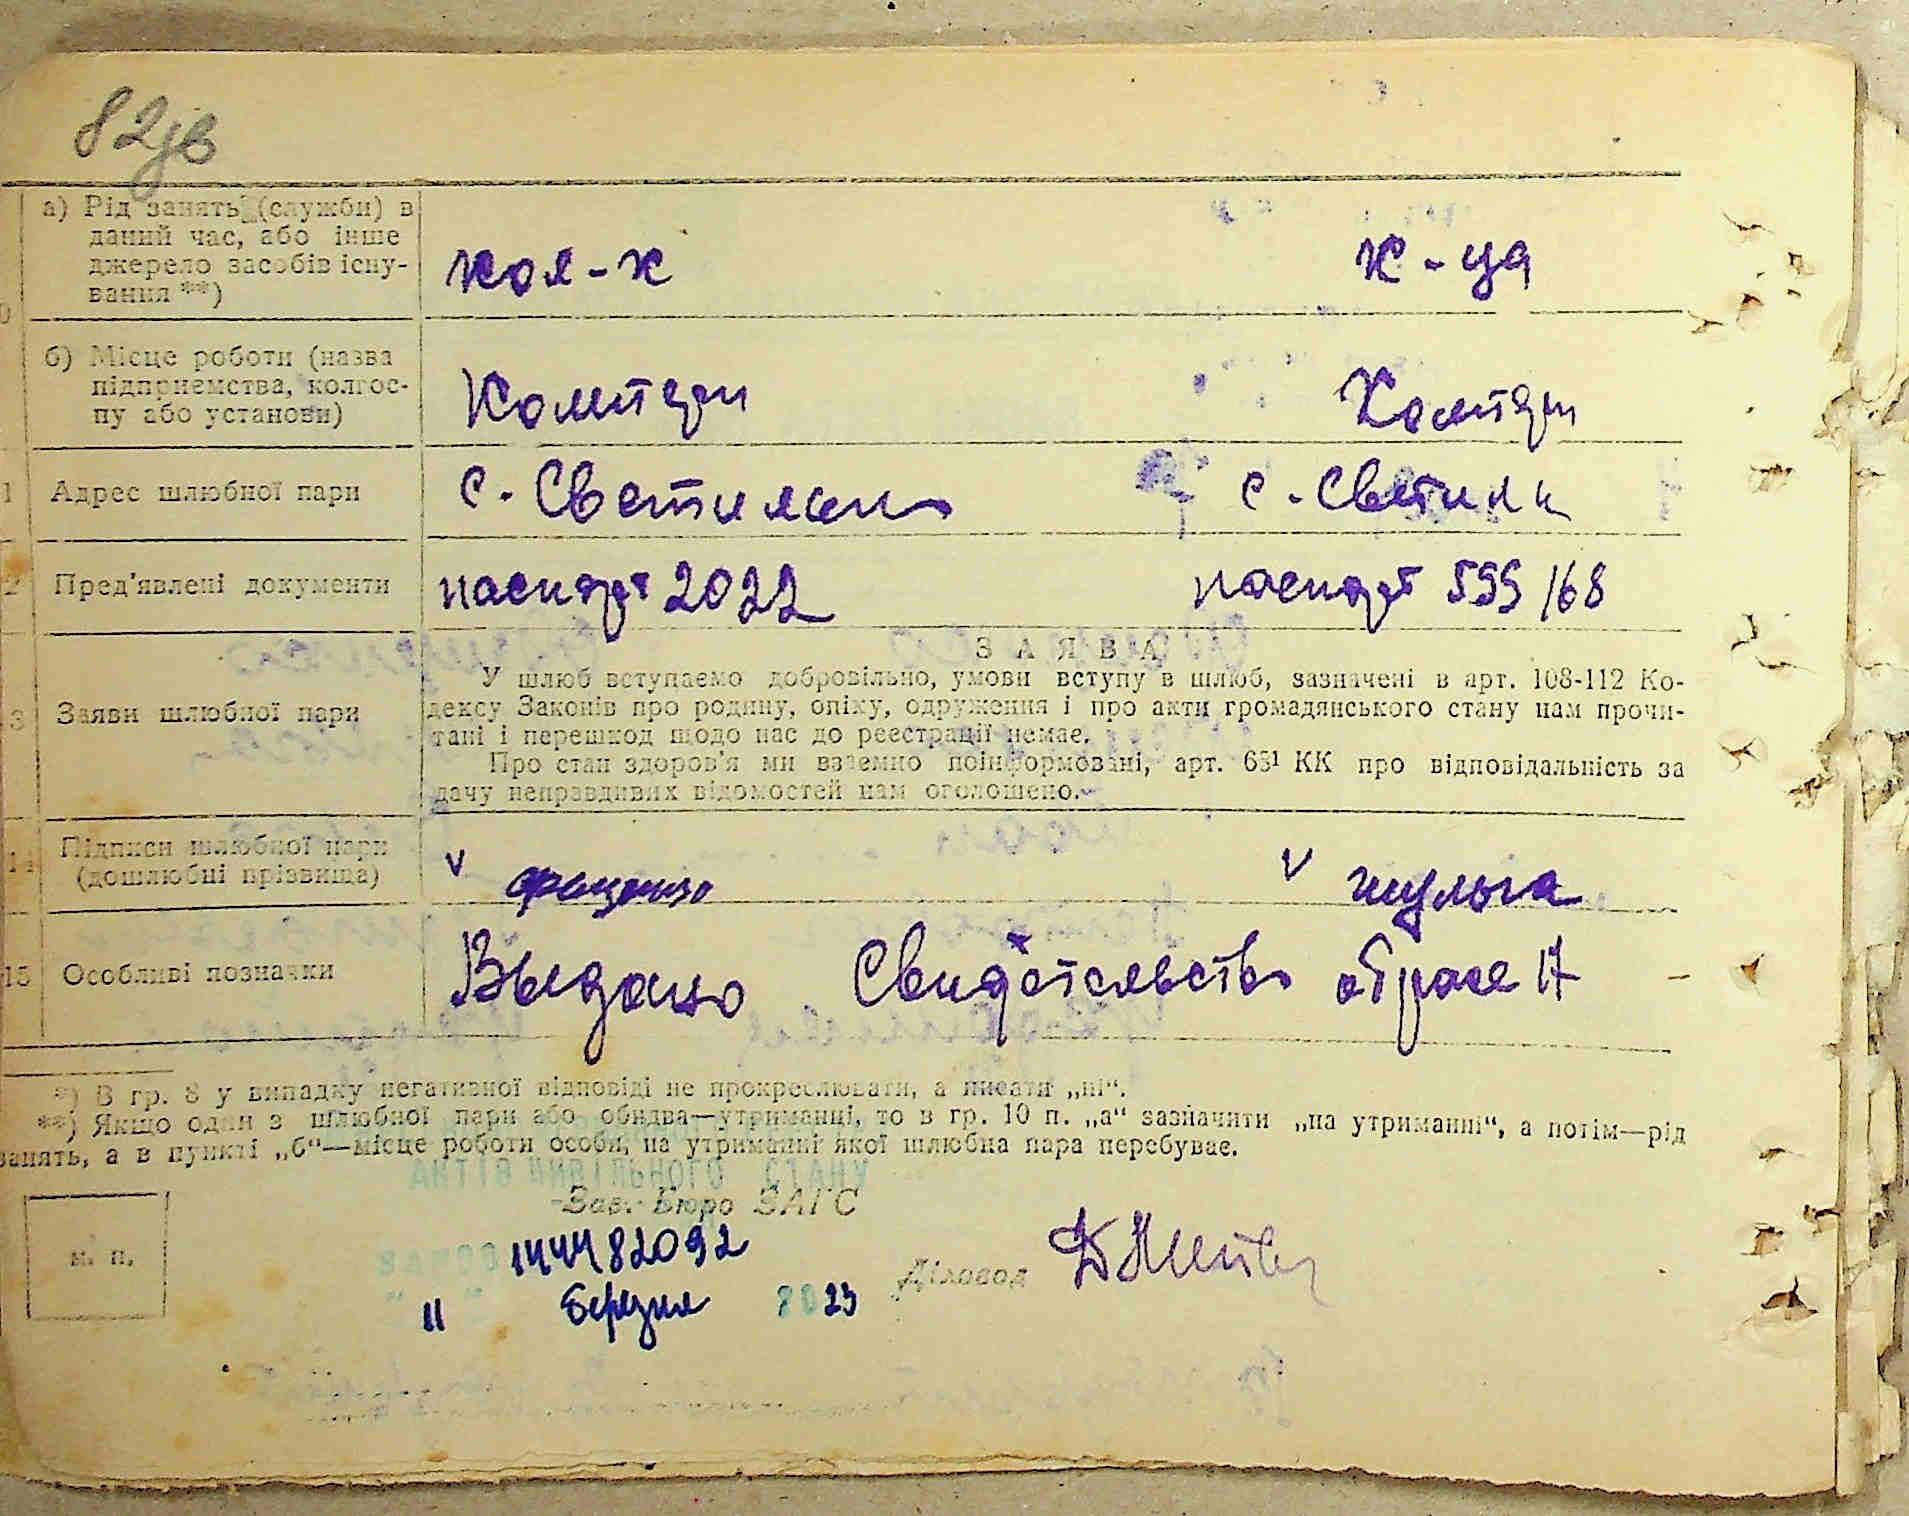 82зв
а) Рід занять (служби) в
даний час, або інше
джерело засобів існу-
вання **)
кол-к
к-ца
б) Місце роботи (назва
підприємства, колгос-
пу або установи)
1 Адрес шлюбної пари
с.
с.
2 Пред'явлені документи
паспорт 2022
паспорт 599/68
3 Заяви шлюбної пари
ЗАЯВА
У шлюб вступаємо добровільно, умови вступу в шлюб, зазначені в арт. 108-112 Ко-
дексу Законів про родину, опіку, одруження і про акти громадянського стану нам прочи-
тані і перешкод щодо нас до реєстрації немає.
Про стан здоров'я ми взаємно поінформовані, арт. 65¹ КК про відповідальність за
дачу неправдивих відомостей нам оголошено.
14 Підписи шлюбної пари
(дошлюбні прізвища)
v
v
15 Особливі позначки
Выдано Свидетельство
*) В гр. 8 у випадку негативної відповіді не прокреслювати, а писати „ні“.
**) Якщо один з шлюбної пари або обидва—утриманці, то в гр. 10 п. „а“ зазначити „на утриманні“, а потім—рід
занять, а в пункті „б“—місце роботи особи, на утриманні якої шлюбна пара перебуває.
АКТІВ ЦИВІЛЬНОГО СТАНУ
Зав. Бюро ЗАГС
м. п.
144482092
Діловод
11 березня 2023